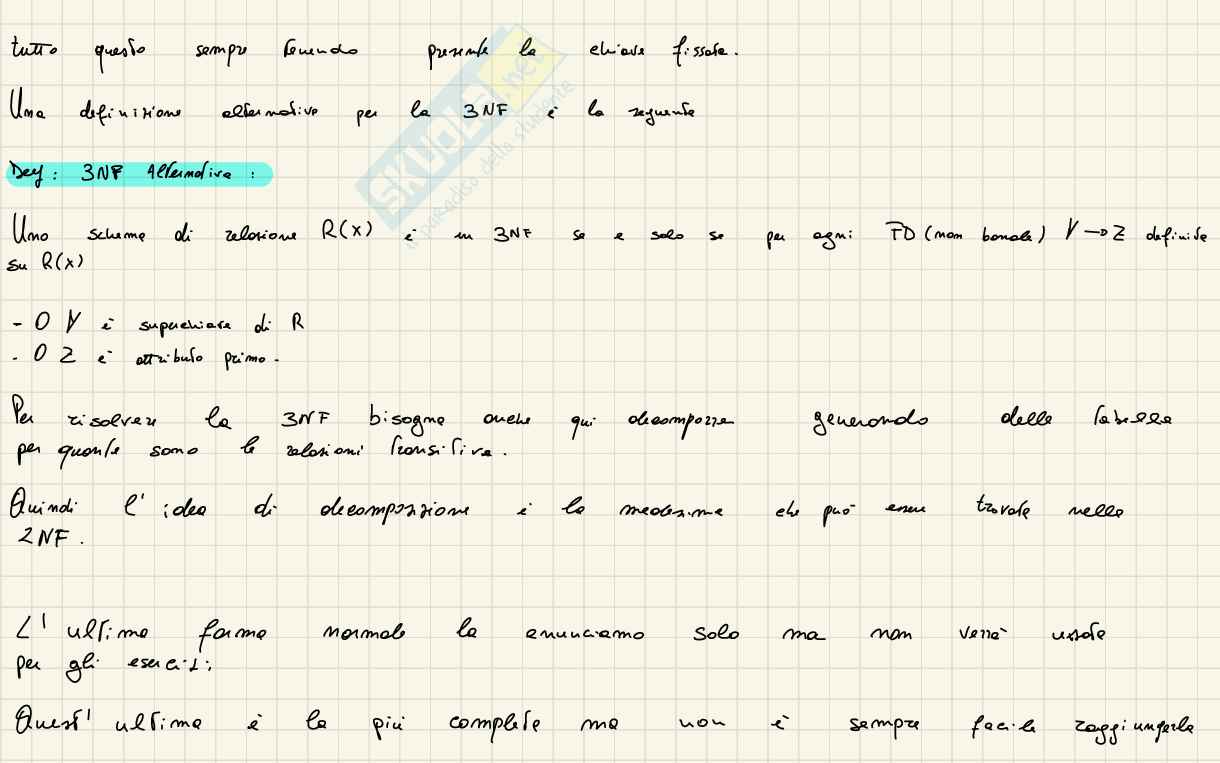 tutto questo sempre tenendo presente la chiave fissata.
Una definizione alternativa per la 3NF è la seguente
Def: 3NF Alternativa:
Uno schema di relazione R(X) è in 3NF se e solo se per ogni FD (non banale) Y → Z definita
su R(X)
- O Y è superchiave di R
- O Z è attributo primo.
Per risolvere la 3NF bisogna anche qui decomporre generando delle tabelle
per quante sono le relazioni transitive.
Quindi l'idea di decomposizione è la medesima che può essere trovata nella
2NF.
L'ultima forma normale la enunciamo solo ma non verrà usata
per gli esercizi;
Quest'ultima è la più completa ma non è sempre facile raggiungerla
SKUOLA.net
il paradiso dello studente